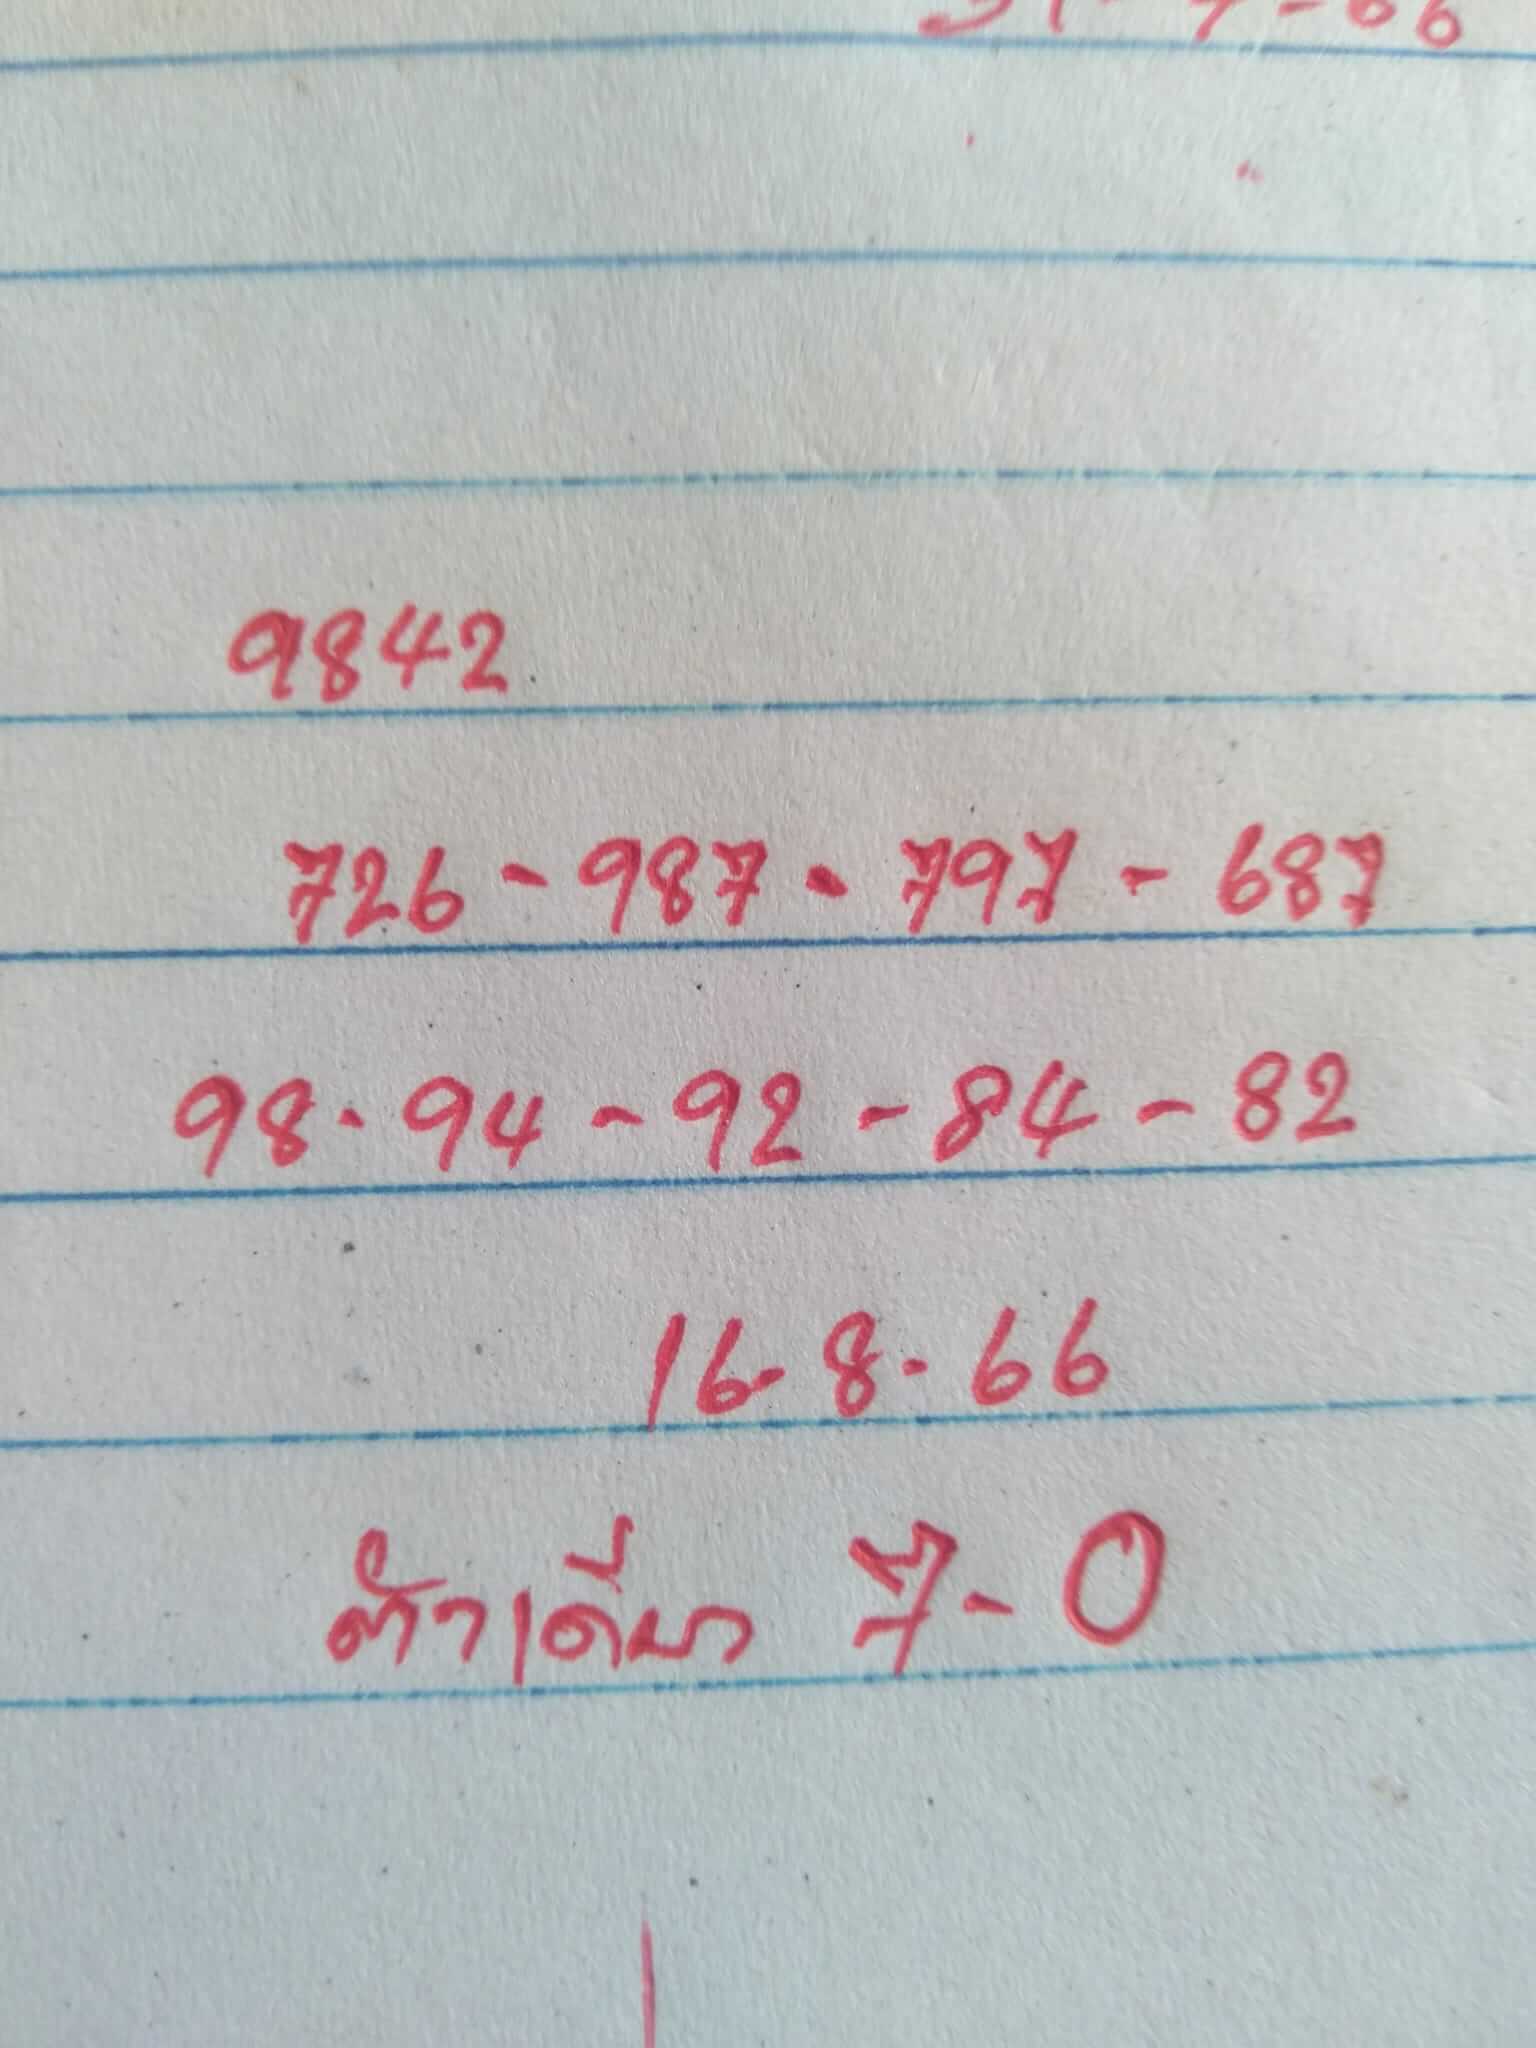 9842
726 - 987 - 797 - 687
98 - 94 - 92 - 84 - 82
16 - 8 - 66
ตัวเดี่ยว 7 - 0